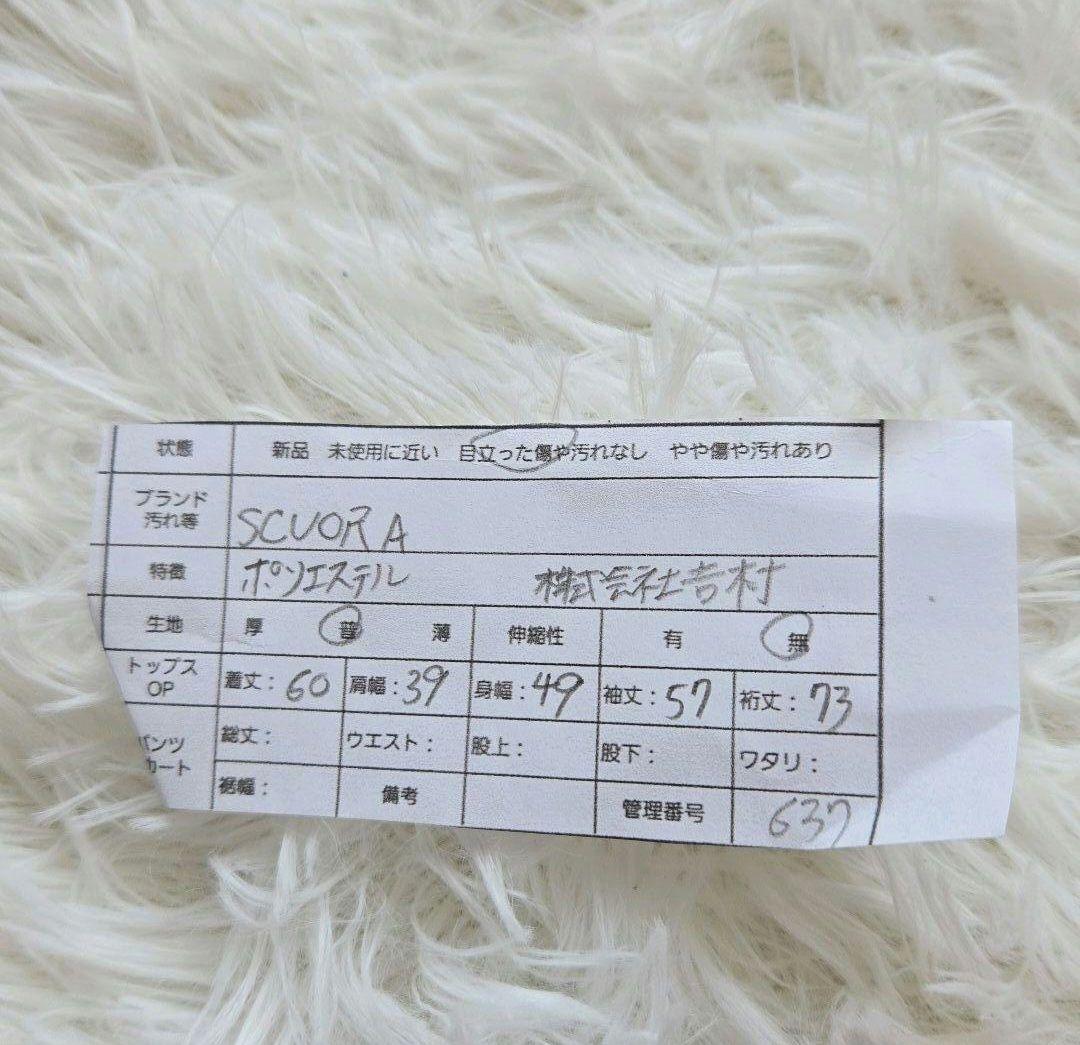 状態 新品 未使用に近い 目立った傷や汚れなし やや傷や汚れあり
ブランド
汚れ等 SCUORA
特徴 ポリエステル 株式会社吉村
生地 厚 普 薄 伸縮性 有 無
トップス
OP 着丈：60 肩幅：39 身幅：49 袖丈：57 裄丈：73
パンツ
カート 総丈： ウエスト： 股上： 股下： ワタリ：
裾幅： 備考 管理番号 637